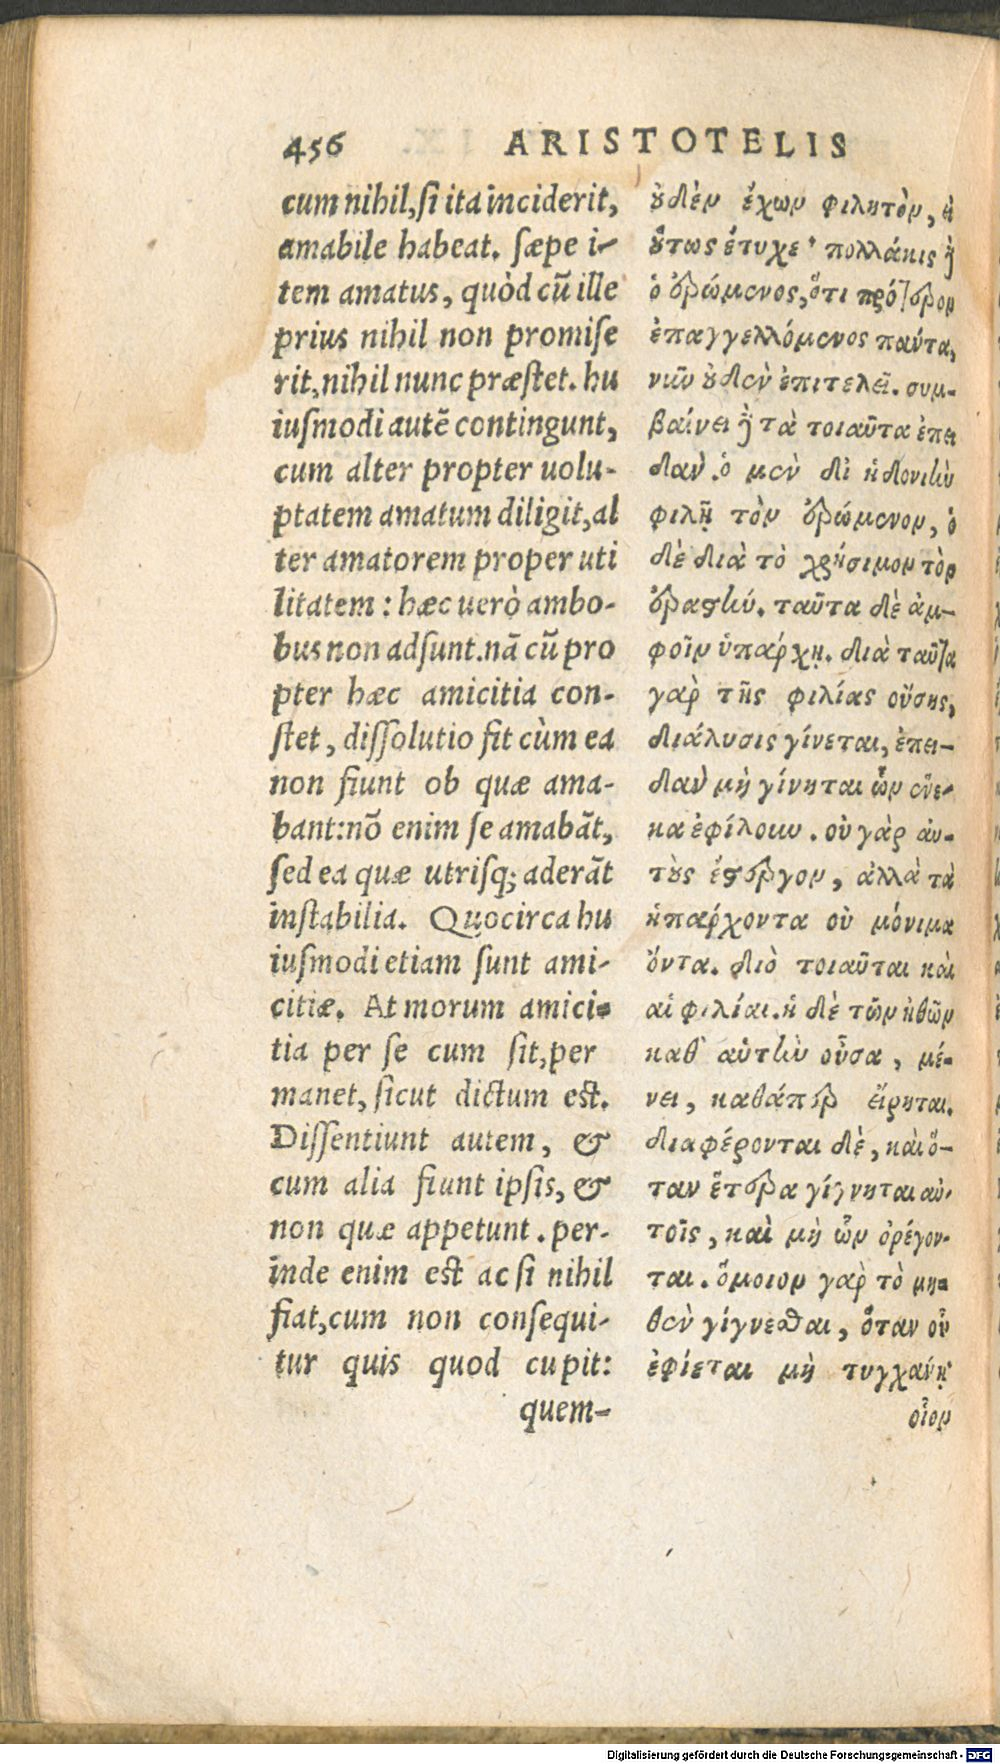 456 ARISTOTELIS
cum nihil, si ita inciderit,
amabile habeat. sæpe i-
tem amatus, quòd cũ ille
prius nihil non promise
rit, nihil nunc præstet. hu
iusmodi autẽ contingunt,
cum alter propter uolu-
ptatem amatum diligit, al
ter amatorem proper uti
litatem : hæc uerò ambo-
bus non adsunt. nã cũ pro
pter hæc amicitia con-
stet, dissolutio fit cùm ea
non fiunt ob quæ ama-
bant: nõ enim se amabãt,
sed ea quæ utrisq; aderãt
instabilia. Quocirca hu
iusmodi etiam sunt ami-
citiæ. At morum amici-
tia per se cum sit, per
manet, sicut dictum est.
Dissentiunt autem, &
cum alia fiunt ipsis, &
non quæ appetunt. per-
inde enim est ac si nihil
fiat, cum non consequi-
tur quis quod cupit:
quem-
ȣ̓δὲν ἔχων φιλητὸν, εἰ
ȣ̔́τως ἔτυχε· πολλάκις δ̀
ὁ ἐρώμενος, ὅτι πρότερον
ἐπαγγελλόμενος πάντα,
νιῦ ȣ̓δὲν ἐπιτελεῖ. συμ-
βαίνει δ̀ τὰ τοιαῦτα ἐπει
δὰν ὁ μὲν δι' ἡδονὴν
φιλῇ τὸν ἐρώμενον, ὁ
δὲ διὰ τὸ χρήσιμον τὸν
ἐραστήν. ταῦτα δὲ ἀμ-
φοῖν ὑπάρχῃ. διὰ ταῦτα
γὰρ τῆς φιλίας οὔσης,
διάλυσις γίνεται, ἐπει-
δὰν μὴ γίνηται ὧν ἕνε-
κα ἐφίλουν. οὐ γὰρ αὐ-
τȣ̀ς ἔστεργον, ἀλλὰ τὰ
ὑπάρχοντα οὐ μόνιμα
ὄντα. διὸ τοιαῦται καὶ
αἱ φιλίαι. ἡ δὲ τῶν ἠθῶν
καθ' αὑτὴν οὖσα, μέ-
νει, καθάπερ εἴρηται.
διαφέρονται δὲ, καὶ ὅ-
ταν ἕτερα γίγνηται αὐ-
τοῖς, καὶ μὴ ὧν ὀρέγον-
ται. ὅμοιον γὰρ τὸ μη-
θὲν γίγνεσθαι, ὅταν οὗ
ἐφίεται μὴ τυγχάνῃ
οἷον
Digitalisierung gefördert durch die Deutsche Forschungsgemeinschaft - DFG